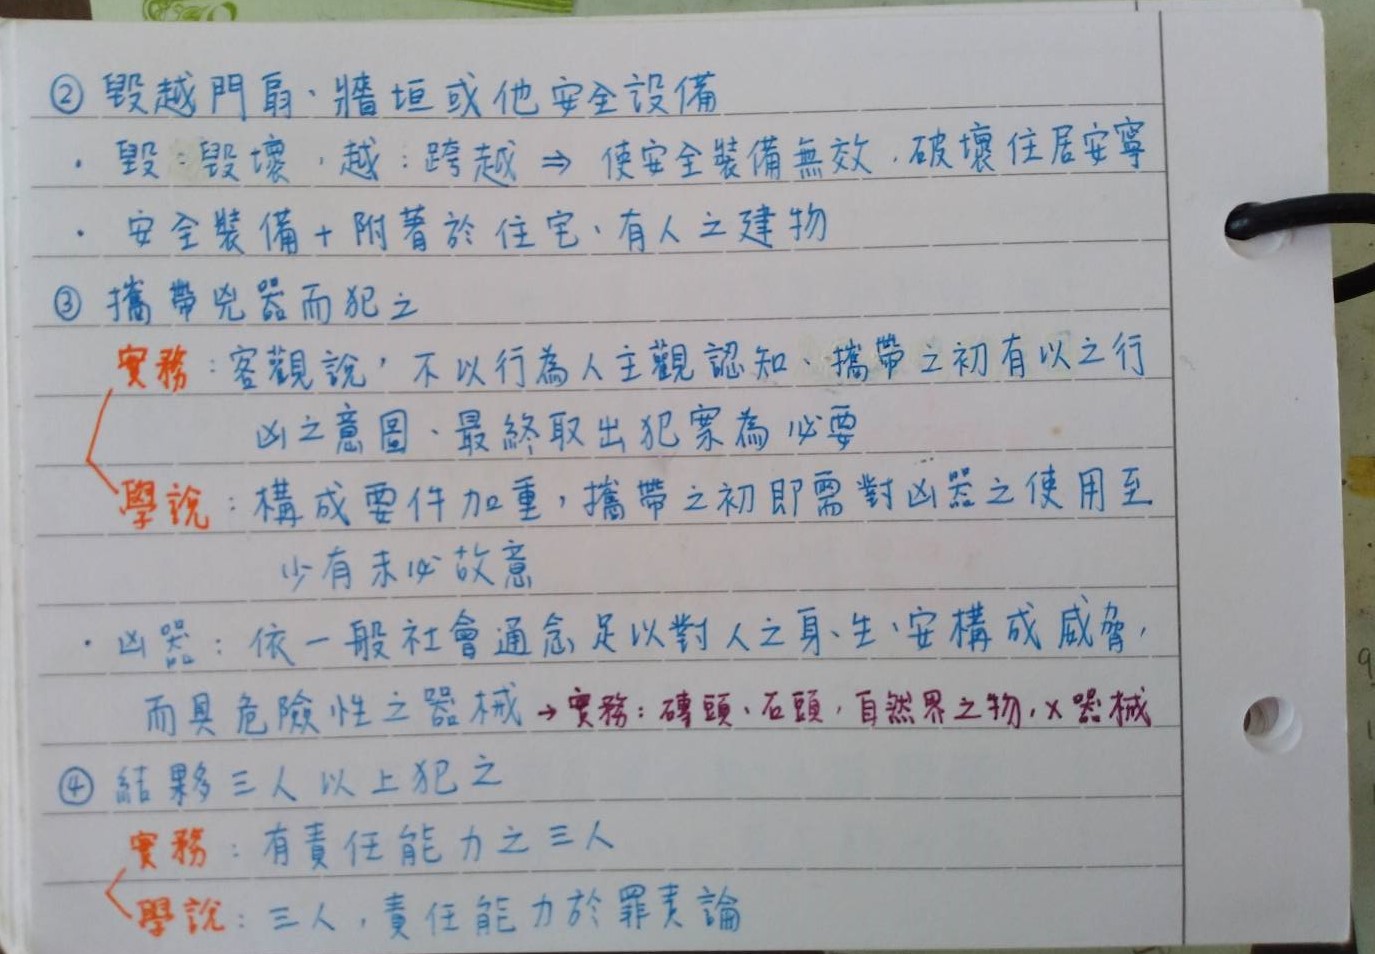 ② 毀越門扇、牆垣或他安全設備
・毀：毀壞，越：跨越 ⇒ 使安全裝備無效，破壞住居安寧
・安全裝備＋附著於住宅、有人之建物
③ 攜帶兇器而犯之
實務：客觀說，不以行為人主觀認知、攜帶之初有以之行
凶之意圖、最終取出犯案為必要
學說：構成要件加重，攜帶之初即需對凶器之使用至
少有未必故意
・凶器：依一般社會通念足以對人之身、生、安構成威脅，
而具危險性之器械→實務：磚頭、石頭，自然界之物，×器械
④ 結夥三人以上犯之
實務：有責任能力之三人
學說：三人，責任能力於罪責論